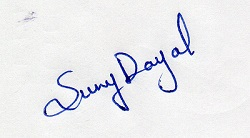 Suny Dayal